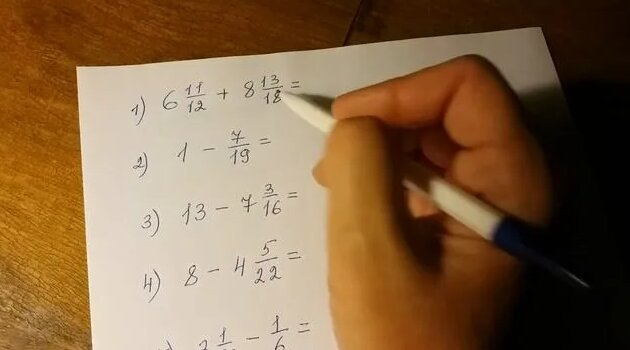 1) 6 11/12 + 8 13/18 =
2) 1 - 7/19 =
3) 13 - 7 3/16 =
4) 8 - 4 5/22 =
- 1/6 =